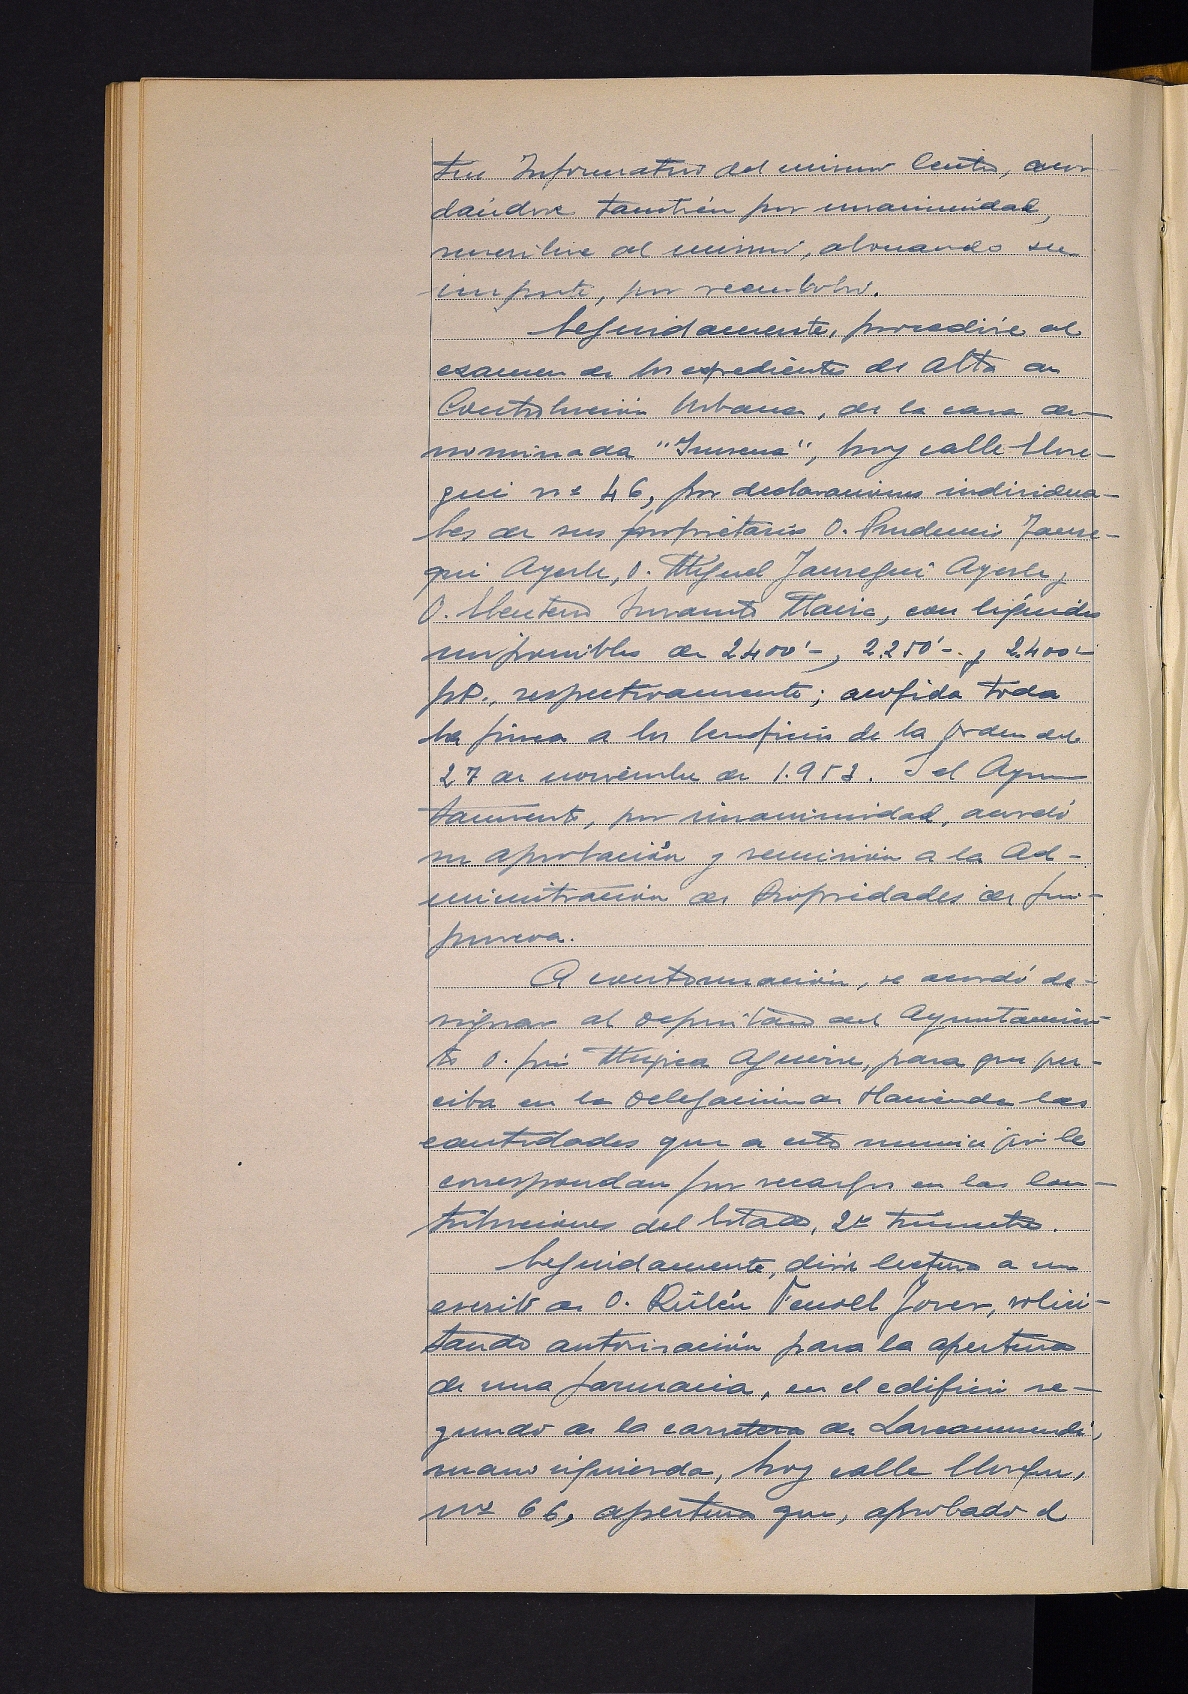 tín Informativo del mismo Centro, acor
dándose también por unanimidad,
suscribirse al mismo, abonando su
importe, por reembolso.
Seguidamente, procedióse al
examen de los expedientes de alta en
Contribución Urbana, de la casa de-
nominada "Inurena", hoy calle Elose-
gui nº 46, por declaraciones individua-
les de sus propietarios D. Prudencio Jaure-
gui Ayerbe, D. Miguel Jauregui Ayerbe y
D. Eleuterio María, con líquidos
imponibles de 2400'-, 2.250'-. y 2.400'-
pts., respectivamente; acogida toda
la finca a los beneficios de la orden del
27 de noviembre de 1.953. Y el Ayun
tamiento, por unanimidad, acordó
su aprobación y remisión a la Ad-
ministración de Propiedades de Gui-
púzcoa.
A continuación, se acordó de-
signar al depositario del Ayuntamien-
to D. José Mugica Aguirre, para que per-
ciba en la Delegación de Hacienda las
cantidades que a este municipio le
correspondan por recargos en las Con-
tribuciones del Estado, 2º trimestre.
Seguidamente, dióse lectura a un
escrito de D. Rubén Fenoll Jover, solici-
tando autorización para la apertura
de una farmacia, en el edificio se-
gundo de la carretera de Larramendi,
mano izquierda, hoy calle Elosegui,
nº 66, apertura que, aprobado el